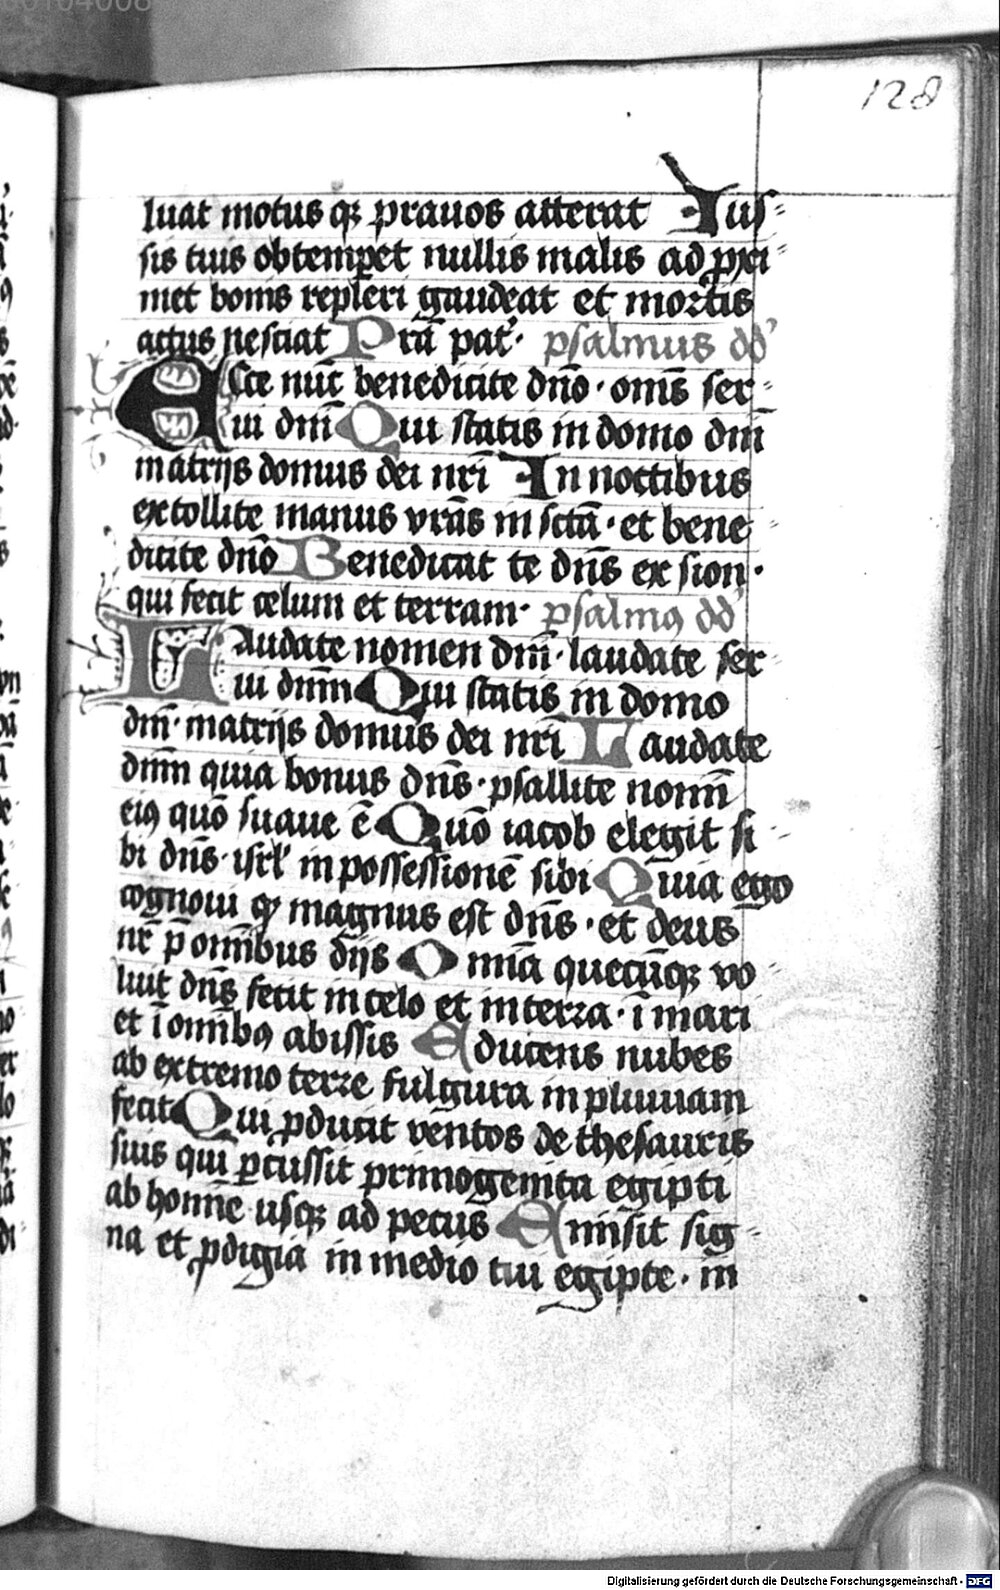 128
luat motus qꝫ prauos atterat Ius⸗
sis tuis obtemꝑet nullis malis ad ꝓxi
met bonis repleri gaudeat et mortis
actus nesciat Prā pat̉. psalmus dd̉
Ecce nūc benedicite dn̄o · om̄s ser⸗
ui dn̄i Qui statis in domo dn̄i
in atrijs domus dei nr̄i In noctibus
extollite manus vrās in sctā · et bene⸗
dicite dn̄o Benedicat te dn̄s ex sion ·
qui fecit celum et terram · psalmꝰ dd̉
Laudate nomen dn̄i · laudate ser⸗
ui dn̄m Qui statis in domo
dn̄i · in atrijs domus dei nr̄i Laudate
dn̄m quia bonus dn̄s · psallite nomī
eiꝰ quō suaue ē Quō iacob elegit si⸗
bi dn̄s · isrl̉ in possessionē sibi Quia ego
cognoui ꝙ magnus est dn̄s · et deus
nr̄ p̄ om̄ibus dijs Om̄ia quecūqꝫ vo⸗
luit dn̄s fecit in celo et in terra · ī mari
et ī om̄ibꝰ abissis Educens nubes
ab extremo terre fulgura in pluuiam
fecit Qui ꝓducit ventos de thesauris
suis qui ꝑcussit primogenita egipti
ab homīe usqꝫ ad pecus Emisit sig⸗
na et ꝓdigia in medio tui egipte · in
Digitalisierung gefördert durch die Deutsche Forschungsgemeinschaft - DFG